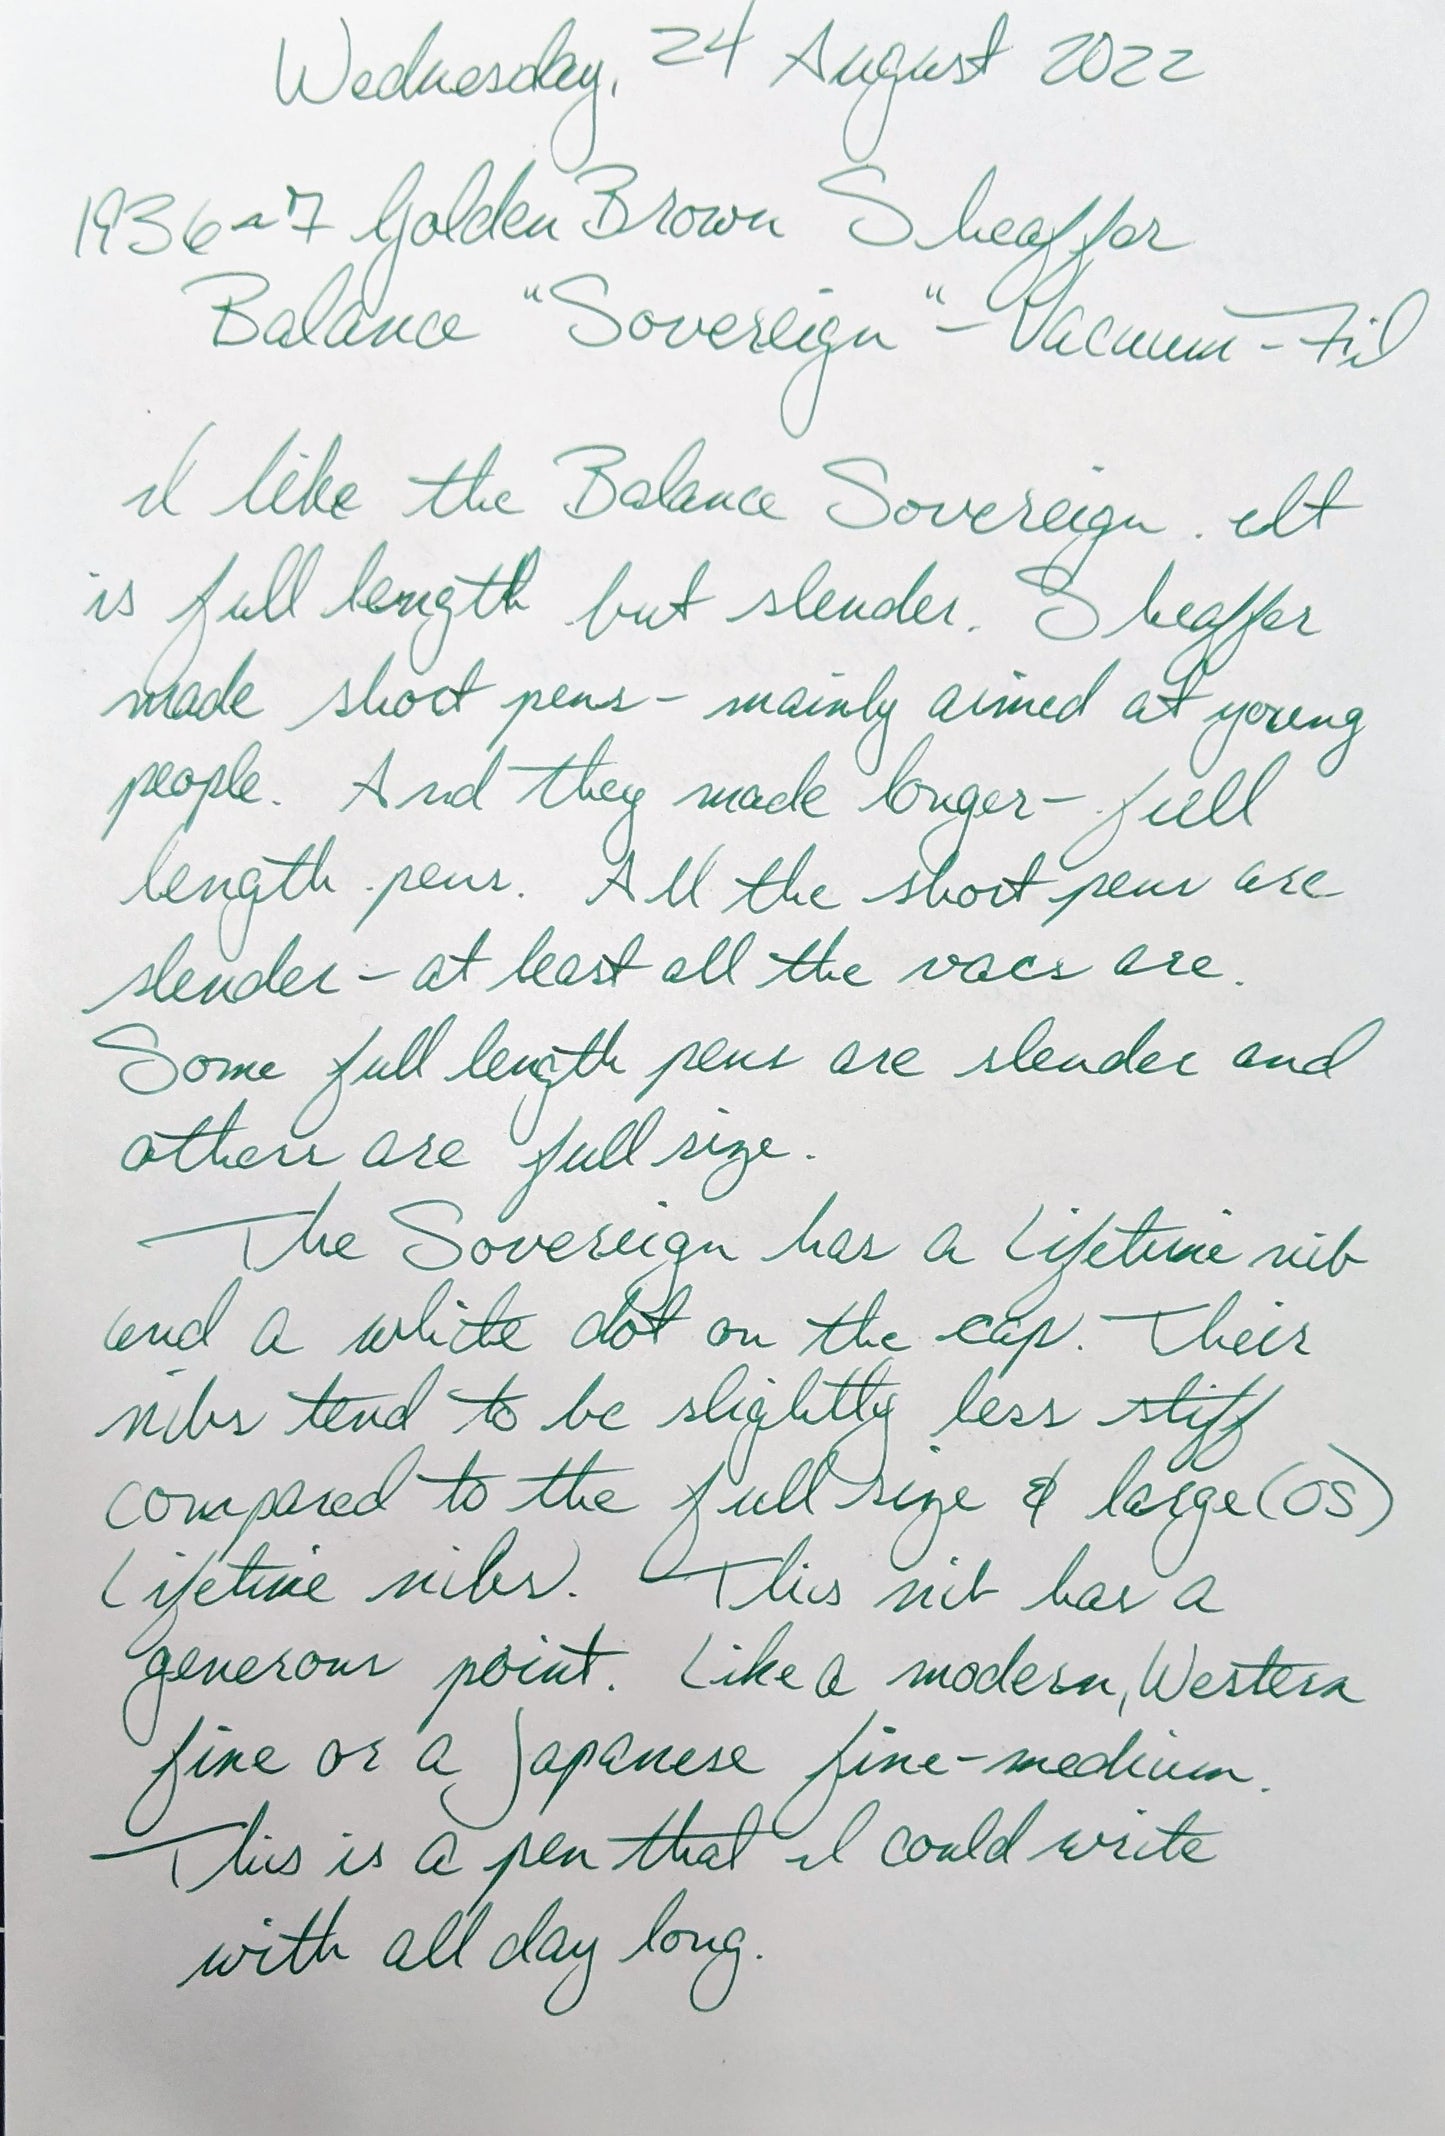 Wednesday, 24 August 2022
1936-7 Golden Brown Sheaffer
Balance "Sovereign" - Vacuum-Fil
I like the Balance Sovereign. It
is full length but slender. Sheaffer
made short pens - mainly aimed at young
people. And they made longer - full
length pens. All the short pens are
slender - at least all the vacs are.
Some full length pens are slender and
others are full size.
The Sovereign has a Lifetime nib
and a white dot on the cap. Their
nibs tend to be slightly less stiff
compared to the full size & large (OS)
Lifetime nibs. This nib has a
generous point. Like a modern, Western
fine or a Japanese fine-medium.
This is a pen that I could write
with all day long.